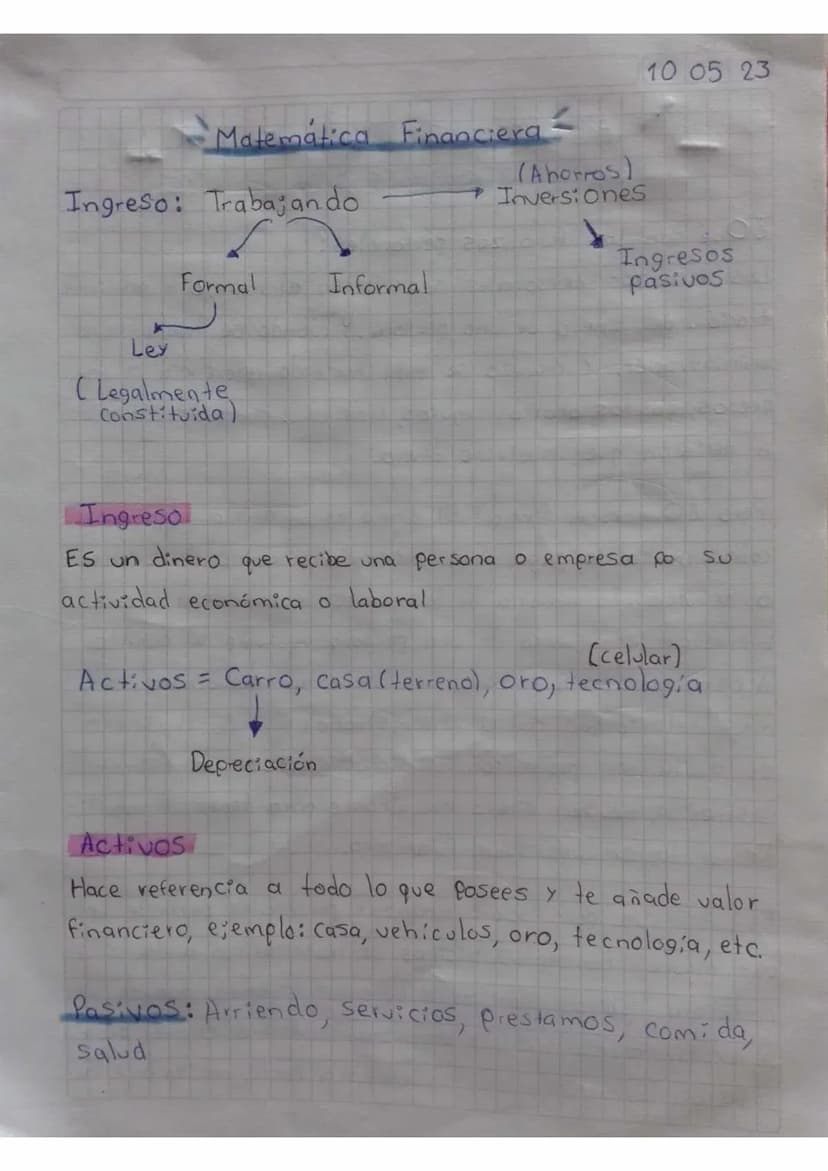 10 05 23
Matemática Financiera
(Ahorros)
Ingreso: Trabajando → Inversiones
Ingresos
pasivos
Formal Informal
Ley
(Legalmente
constituida)
Ingreso
Es un dinero que recibe una persona o empresa po su
actividad económica o laboral
(celular)
Activos = Carro, casa (terreno), oro, tecnología
Depreciación
Activos
Hace referencia a todo lo que posees y te añade valor
financiero, ejemplo: casa, vehículos, oro, tecnología, etc.
Pasivos: Arriendo, servicios, prestamos, comida,
salud